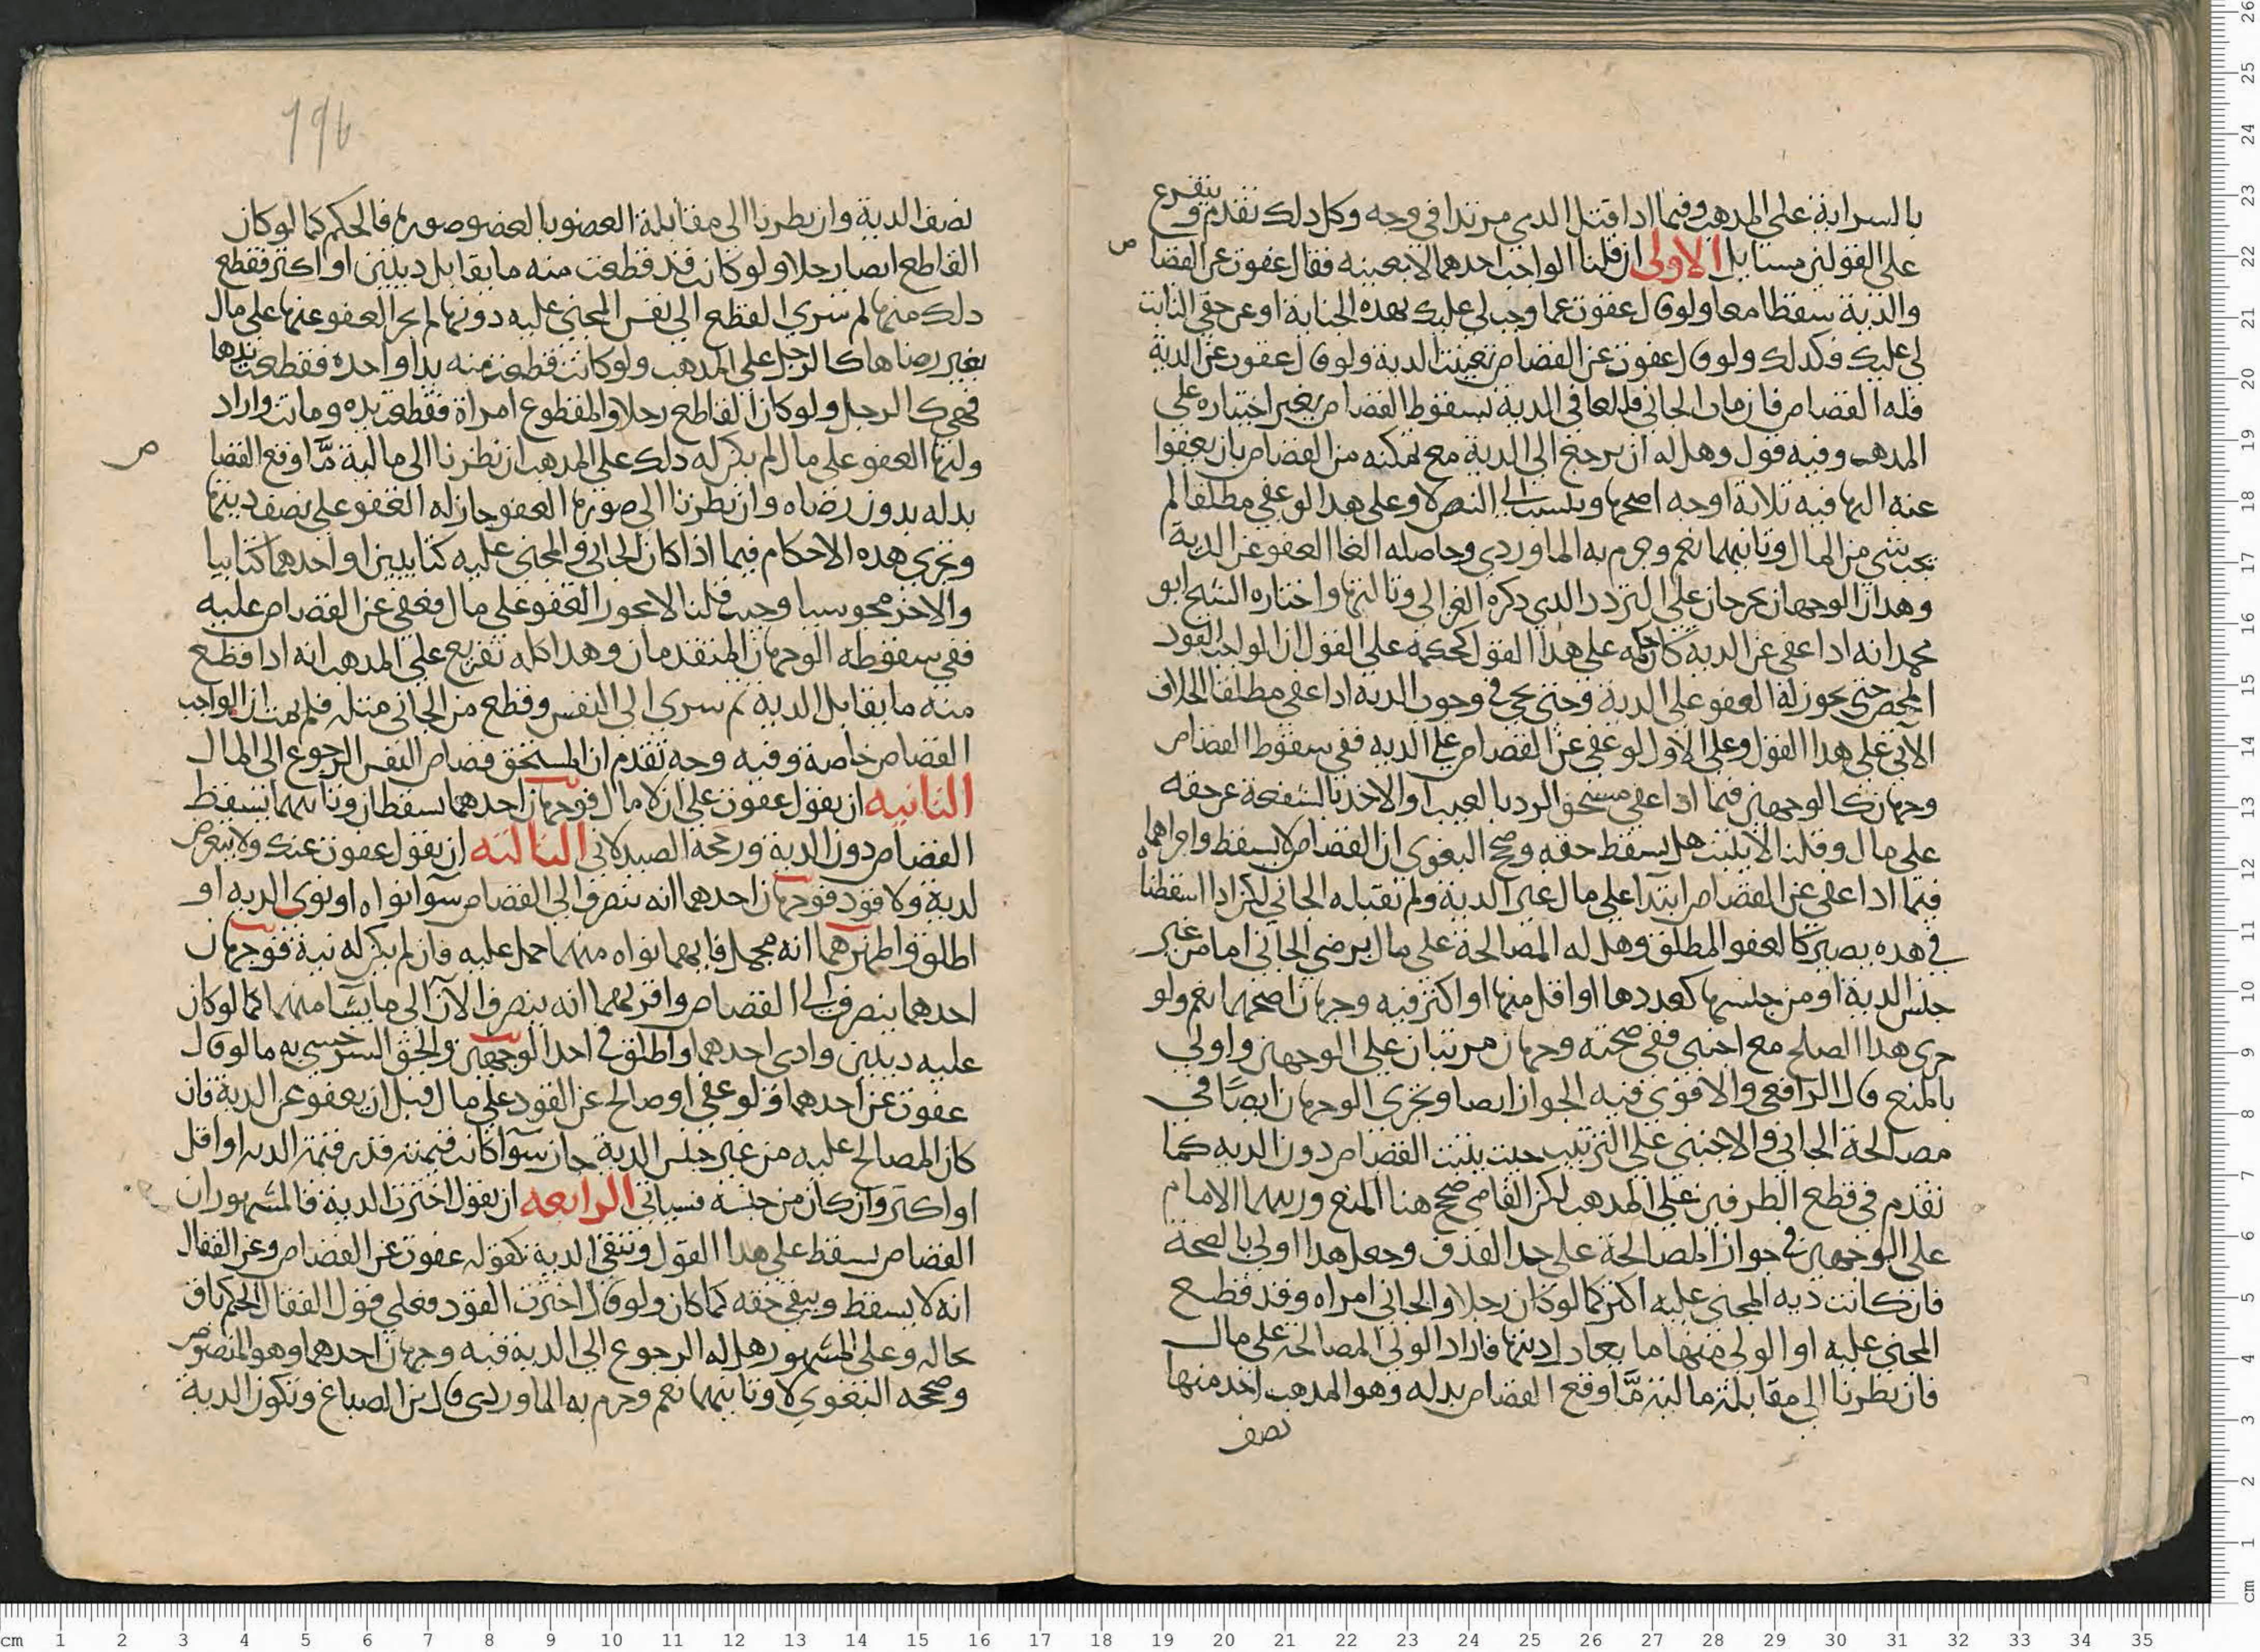 بالسراية على المذهب وفيما اذا قتل الذي مرتدا في وجه وكل ذلك تقدم ويتفرع
على القولين مسايل الاولى ان قلنا الواجب احدهما لا بعينه فقال عفوت عن القصاص
والدية سقطا معا ولو قال عفوت عما وجب لي عليك بهذه الجناية او عن حقي الثابت
لي عليك فكذلك ولو قال عفوت عن القصاص تعينت الدية ولو قال عفوت عن الدية
فله القصاص فان مات الجاني فللعافي الدية لسقوط القصاص بغير اختياره على
المذهب وفيه قول وهل له ان يرجع الى الدية مع تمكنه من القصاص بان يعفوا
عنه اليها فيه ثلاثة اوجه اصحها وينسب الى النص لا وعلى هذا لو عفى مطلقا لم
يجب شي من المال وثانيهما نعم وجزم به الماوردي وحاصله الغا العفو عن الدية
وهذان الوجهان يخرجان على التردد الذي ذكره الغزالي وثالثها واختاره الشيخ ابو
محمد انه اذا عفى عن الدية كان حكمه على هذا القول كحكمه على القول ان الواجب القود
المحض حتى يجوز له العفو على الدية وحتى يجي في وجوب الدية اذا عفى مطلقا الخلاف
الآتي على هذا القول وعلى الاول لو عفى عن القصاص على الدية ففي سقوط القصاص
وجهان كالوجهين فيما اذا عفى مستحق الرد بالعيب او الاخذ بالشفعة عن حقه
على مال وقلنا لا يثبت هل يسقط حقه وصحح البغوي ان القصاص لا يسقط واجراهما
فيما اذا عفى عن القصاص ابتدآ على مال غير الدية ولم يقبله الجاني لكن اذا اسقطنا
في هذه يصير كالعفو المطلق وهل له المصالحة على مال برضى الجاني اما من غير
جنس الدية او من جنسها كعددها او اقل منها او اكثر فيه وجهان اصحهما نعم ولو
جرى هذا الصلح مع اجنبي ففي صحته وجهان مرتبان على الوجهين واولى
بالمنع قال الرافعي والاقوى فيه الجواز ايضا وتجري الوجهان ايضًا في
مصالحة الجاني والاجنبي على الترتيب حيث يثبت القصاص دون الدية كما
تقدم في قطع الطرفين على المذهب لكن القاضي صحح هنا المنع ورتبهما الامام
على الوجهين في جواز المصالحة على حد القذف وجعل هذا اولى بالصحة
فان كانت دية المجني عليه اكثر كما لو كان رجلا والجاني امراه وقد قطع
المجني عليه او الولي منها ما يعادل ديتها فاراد الولي المصالحة على مال
فان نظرنا الى مقابلة مالية مّا وقع القصاص بدله وهو المذهب اخذ منها
نصف
196
نصف الدية وان نظرنا الى مقابلة العضو بالعضو صورة فالحكم كما لو كان
القاطع ايضا رجلا ولو كانت قد قطعت منه ما يقابل ديتين او اكثر فقطع
ذلك منها ثم سرى القطع الى نفس المجني عليه دونها لم يجز العفو عنها على مال
بغير رضاها كالرجل على المذهب ولو كانت قطعت منه يدا واحدة فقطعت يدها
فهي كالرجل ولو كان القاطع رجلا والمقطوع امراة فقطعت يده ومات واراد
وليها العفو على مال لم يكن له ذلك على المذهب ان نظرنا الى مالية مّا وقع القصاص
بدله بدون رضاه وان نظرنا الى صورة العفو جاز له العفو على نصف ديتها
وتجري هذه الاحكام فيما اذا كان الجاني والمجني عليه كتابيين او احدهما كتابيا
والاخر مجوسيا وحيث قلنا لا يجوز العفو على مال فعفى عن القصاص عليه
ففي سقوطه الوجهان المتقدمان وهذا كله تفريع على المذهب انه اذا قطع
منه ما يقابل الدية ثم سرى الى النفس وقطع من الجاني مثله فلم يمت ان الواجب
القصاص خاصة وفيه وجه تقدم ان لمستحق قصاص النفس الرجوع الى المال
الثانيه ان يقول عفوت على ان لا مال فوجهان احدهما يسقطان وثانيهما يسقط
القصاص دون الدية ورجحه الصيدلاني الثالثه ان يقول عفوت عنك ولا يتعرض
لدية ولا قود فوجهان احدهما انه ينصرف الى القصاص سوآ نواه او نوى الدية او
اطلق واظهرهما انه مجمل فايهما نواه منهما حمل عليه وان لم يكن له نية فوجهان
احدهما ينصرف الى القصاص واقربهما انه ينصرف الآن الى ما يشا منهما كما لو كان
عليه ديتين وادى احدهما واطلق في احد الوجهين والحق السرخسي به ما لو قال
عفوت عن احدهما ولو عفى او صالح عن القود على مال قبل ان يعفو عن الدية فان
كان المصالح عليه من غير جنس الدية جاز سوآ كانت قيمته قدر قيمة الدية او اقل
او اكثر وان كان من جنسه فسياتي الرابعه ان يقول اخترت الدية فالمشهور ان
القصاص يسقط على هذا القول وتبقى الدية كقوله عفوت عن القصاص وعن القفال
انه لا يسقط ويبقى حقه كما كان ولو قال اخترت القود فعلى قول القفال الحكم باق
بحاله وعلى المشهور هل له الرجوع الى الدية فيه وجهان احدهما وهو المنصوص
وصححه البغوي لا وثانيهما نعم وجزم به الماوردي قال ابن الصباغ وتكون الدية